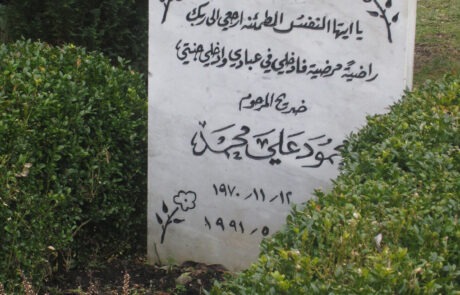 يا ايتها النفس المطمئنة ارجعي الى ربك
راضية مرضية فادخلي في عبادي وادخلي جنتي
ضريح المرحوم
محمود علي محمد
١٩٧٠/١١/١٢
١٩٩١/٥